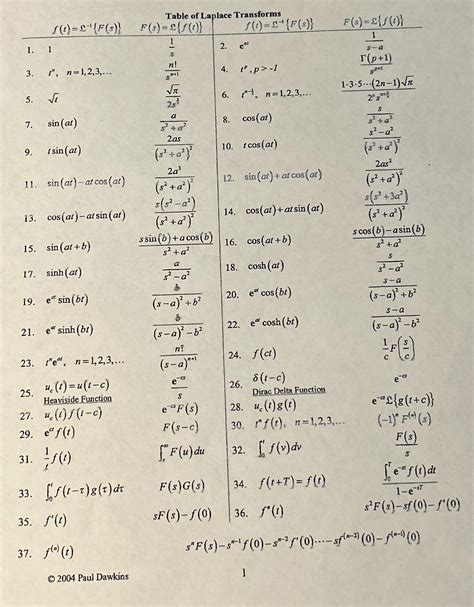 Table of Laplace Transforms
f(t) = ℒ⁻¹{F(s)} F(s) = ℒ{f(t)} f(t) = ℒ⁻¹{F(s)} F(s) = ℒ{f(t)}
1. 1 1/s 2. e^{at} 1/(s-a)
3. t^n, n=1,2,3,... n!/s^{n+1} 4. t^p, p>-1 Γ(p+1)/s^{p+1}
5. √t √π/(2s^{3/2}) 6. t^{n-1/2}, n=1,2,3,... 1·3·5···(2n-1)√π/(2^n s^{n+1/2})
7. sin(at) a/(s²+a²) 8. cos(at) s/(s²+a²)
9. t sin(at) 2as/(s²+a²)² 10. t cos(at) (s²-a²)/(s²+a²)²
11. sin(at)-at cos(at) 2a³/(s²+a²)² 12. sin(at)+at cos(at) 2as²/(s²+a²)²
13. cos(at)-at sin(at) s(s²-a²)/(s²+a²)² 14. cos(at)+at sin(at) s(s²+3a²)/(s²+a²)²
15. sin(at+b) (s sin(b)+a cos(b))/(s²+a²) 16. cos(at+b) (s cos(b)-a sin(b))/(s²+a²)
17. sinh(at) a/(s²-a²) 18. cosh(at) s/(s²-a²)
19. e^{at} sin(bt) b/((s-a)²+b²) 20. e^{at} cos(bt) (s-a)/((s-a)²+b²)
21. e^{at} sinh(bt) b/((s-a)²-b²) 22. e^{at} cosh(bt) (s-a)/((s-a)²-b²)
23. t^n e^{at}, n=1,2,3,... n!/(s-a)^{n+1} 24. f(ct) (1/c)F(s/c)
25. u_c(t)=u(t-c) e^{-cs}/s 26. δ(t-c) e^{-cs}
Heaviside Function Dirac Delta Function
27. u_c(t)f(t-c) e^{-cs}F(s) 28. u_c(t)g(t) e^{-cs}ℒ{g(t+c)}
29. e^{ct}f(t) F(s-c) 30. t^n f(t), n=1,2,3,... (-1)^n F^{(n)}(s)
31. (1/t)f(t) ∫_s^∞ F(u)du 32. ∫_0^t f(v)dv F(s)/s
33. ∫_0^t f(t-τ)g(τ)dτ F(s)G(s) 34. f(t+T)=f(t) ∫_0^T e^{-st}f(t)dt/(1-e^{-sT})
35. f'(t) sF(s)-f(0) 36. f"(t) s²F(s)-sf(0)-f'(0)
37. f^{(n)}(t) s^n F(s)-s^{n-1}f(0)-s^{n-2}f'(0)···-sf^{(n-2)}(0)-f^{(n-1)}(0)
© 2004 Paul Dawkins 1